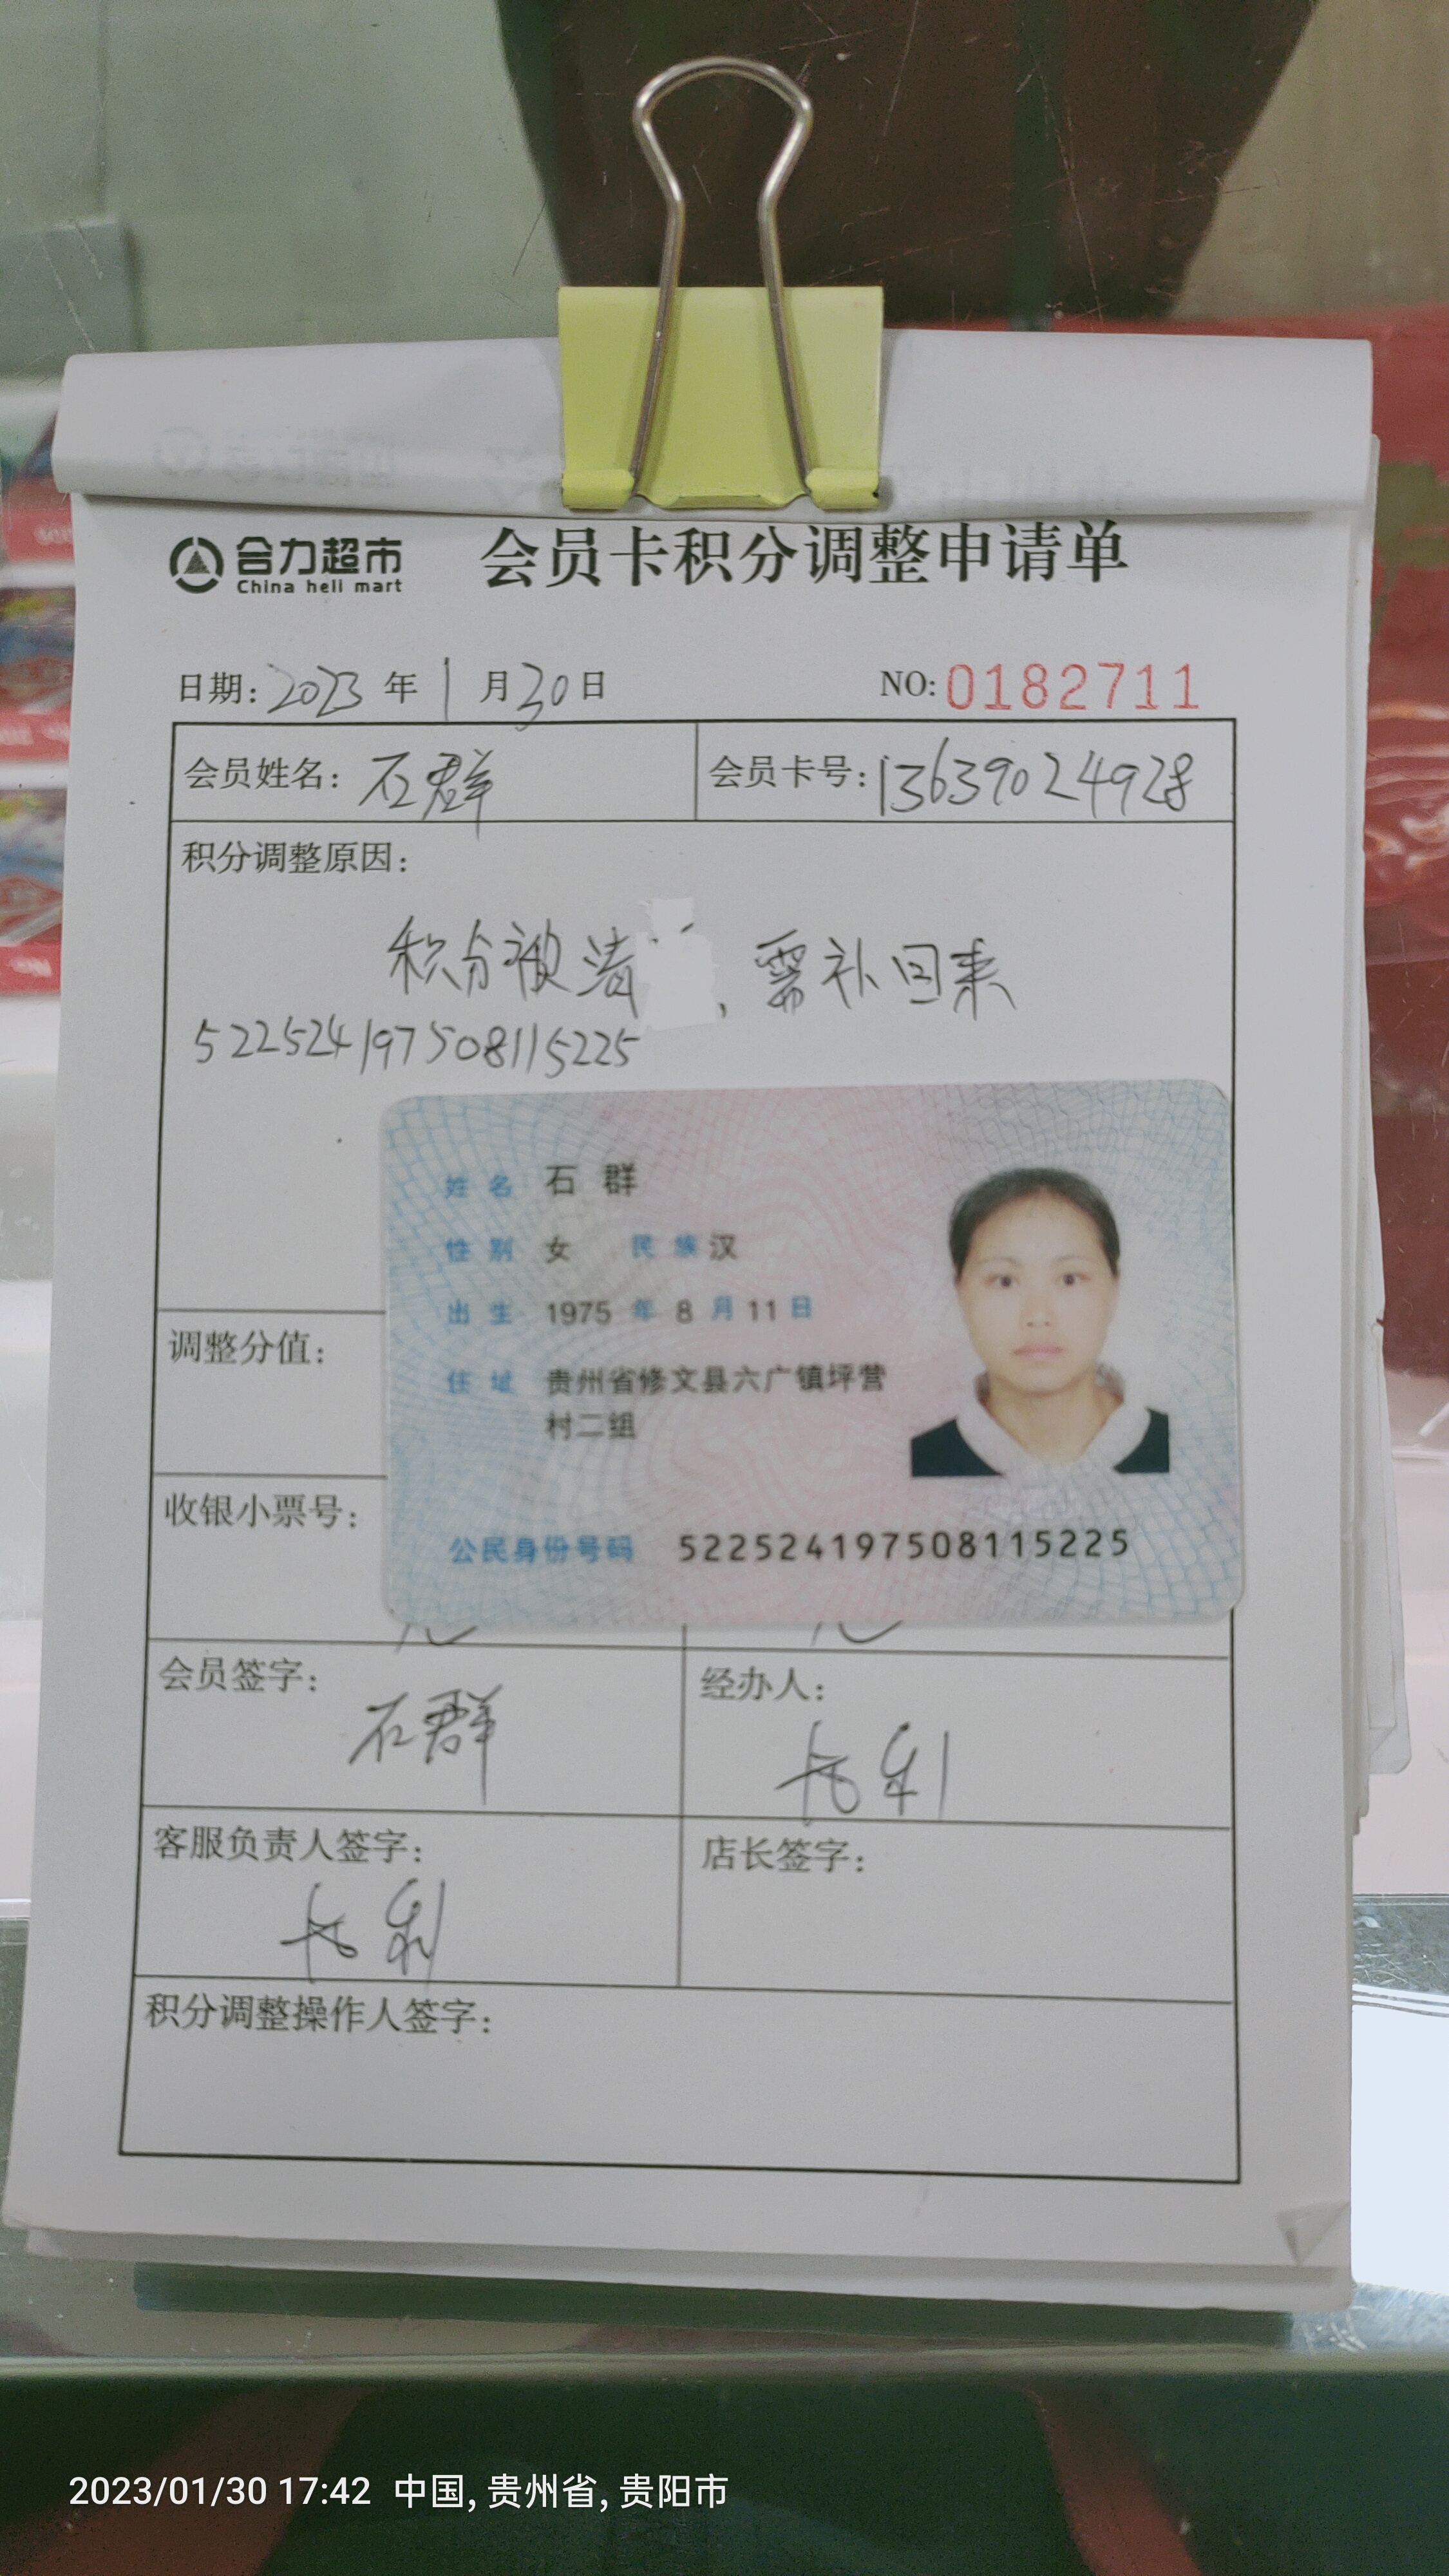 合力超市
China heli mart
会员卡积分调整申请单
日期: 2023 年 1 月 30 日
NO: 0182711
会员姓名: 石群
会员卡号: 13639024928
积分调整原因:
积分被清 , 需补回来
522524197508115225
姓名 石群
性别 女 民族 汉
出生 1975 年 8 月 11 日
住址 贵州省修文县六广镇坪营
村二组
公民身份号码 522524197508115225
调整分值:
收银小票号:
会员签字: 石群
经办人:
客服负责人签字:
店长签字:
积分调整操作人签字:
2023/01/30 17:42 中国, 贵州省, 贵阳市